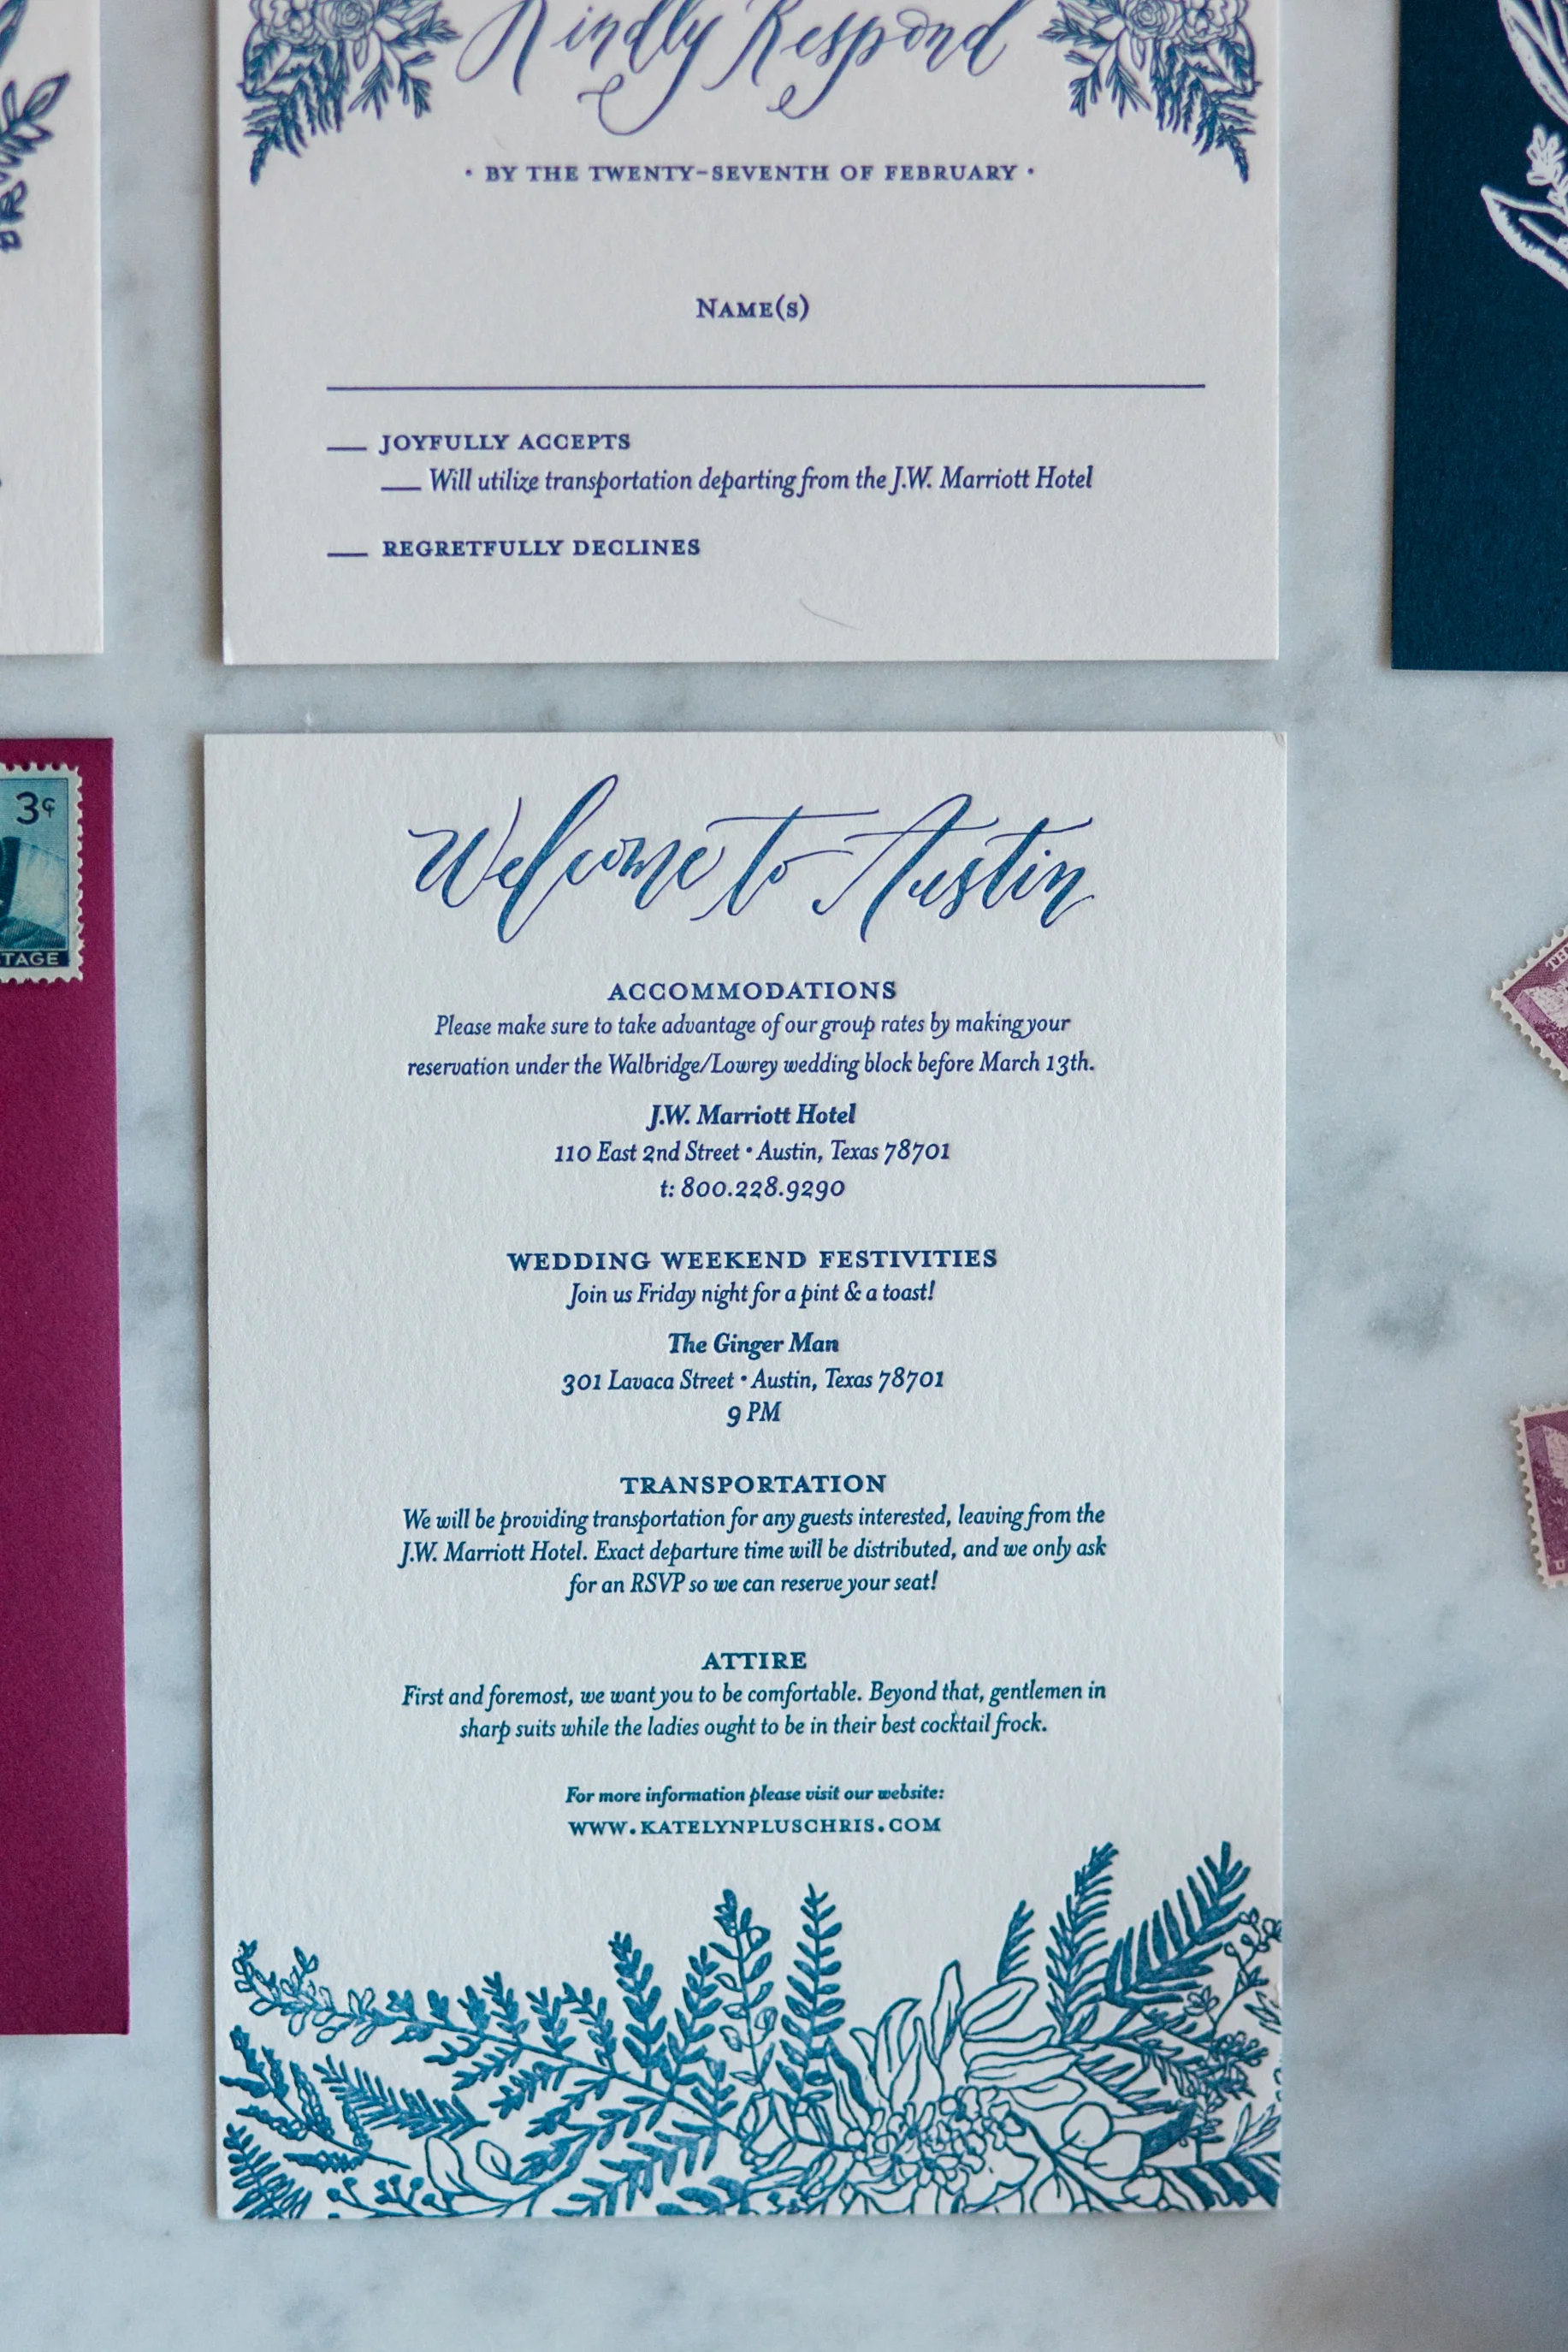 Kindly Respond
• BY THE TWENTY-SEVENTH OF FEBRUARY •
NAME(S)
JOYFULLY ACCEPTS
Will utilize transportation departing from the J.W. Marriott Hotel
REGRETFULLY DECLINES
3¢
TAGE
Welcome to Austin
ACCOMMODATIONS
Please make sure to take advantage of our group rates by making your
reservation under the Walbridge/Lowrey wedding block before March 13th.
J.W. Marriott Hotel
110 East 2nd Street • Austin, Texas 78701
t: 800.228.9290
WEDDING WEEKEND FESTIVITIES
Join us Friday night for a pint & a toast!
The Ginger Man
301 Lavaca Street • Austin, Texas 78701
9 PM
TRANSPORTATION
We will be providing transportation for any guests interested, leaving from the
J.W. Marriott Hotel. Exact departure time will be distributed, and we only ask
for an RSVP so we can reserve your seat!
ATTIRE
First and foremost, we want you to be comfortable. Beyond that, gentlemen in
sharp suits while the ladies ought to be in their best cocktail frock.
For more information please visit our website:
WWW.KATELYNPLUSCHRIS.COM